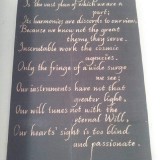 In the vast plan of which we are a
part;
Its harmonies are discords to our view
Because we know not the great
theme they serve.
Inscrutable work the cosmic
agencies.
Only the fringe of a wide surge
we see;
Our instruments have not that
greater light,
Our will tunes not with the
eternal Will,
Our heart's sight is too blind
and passionate.